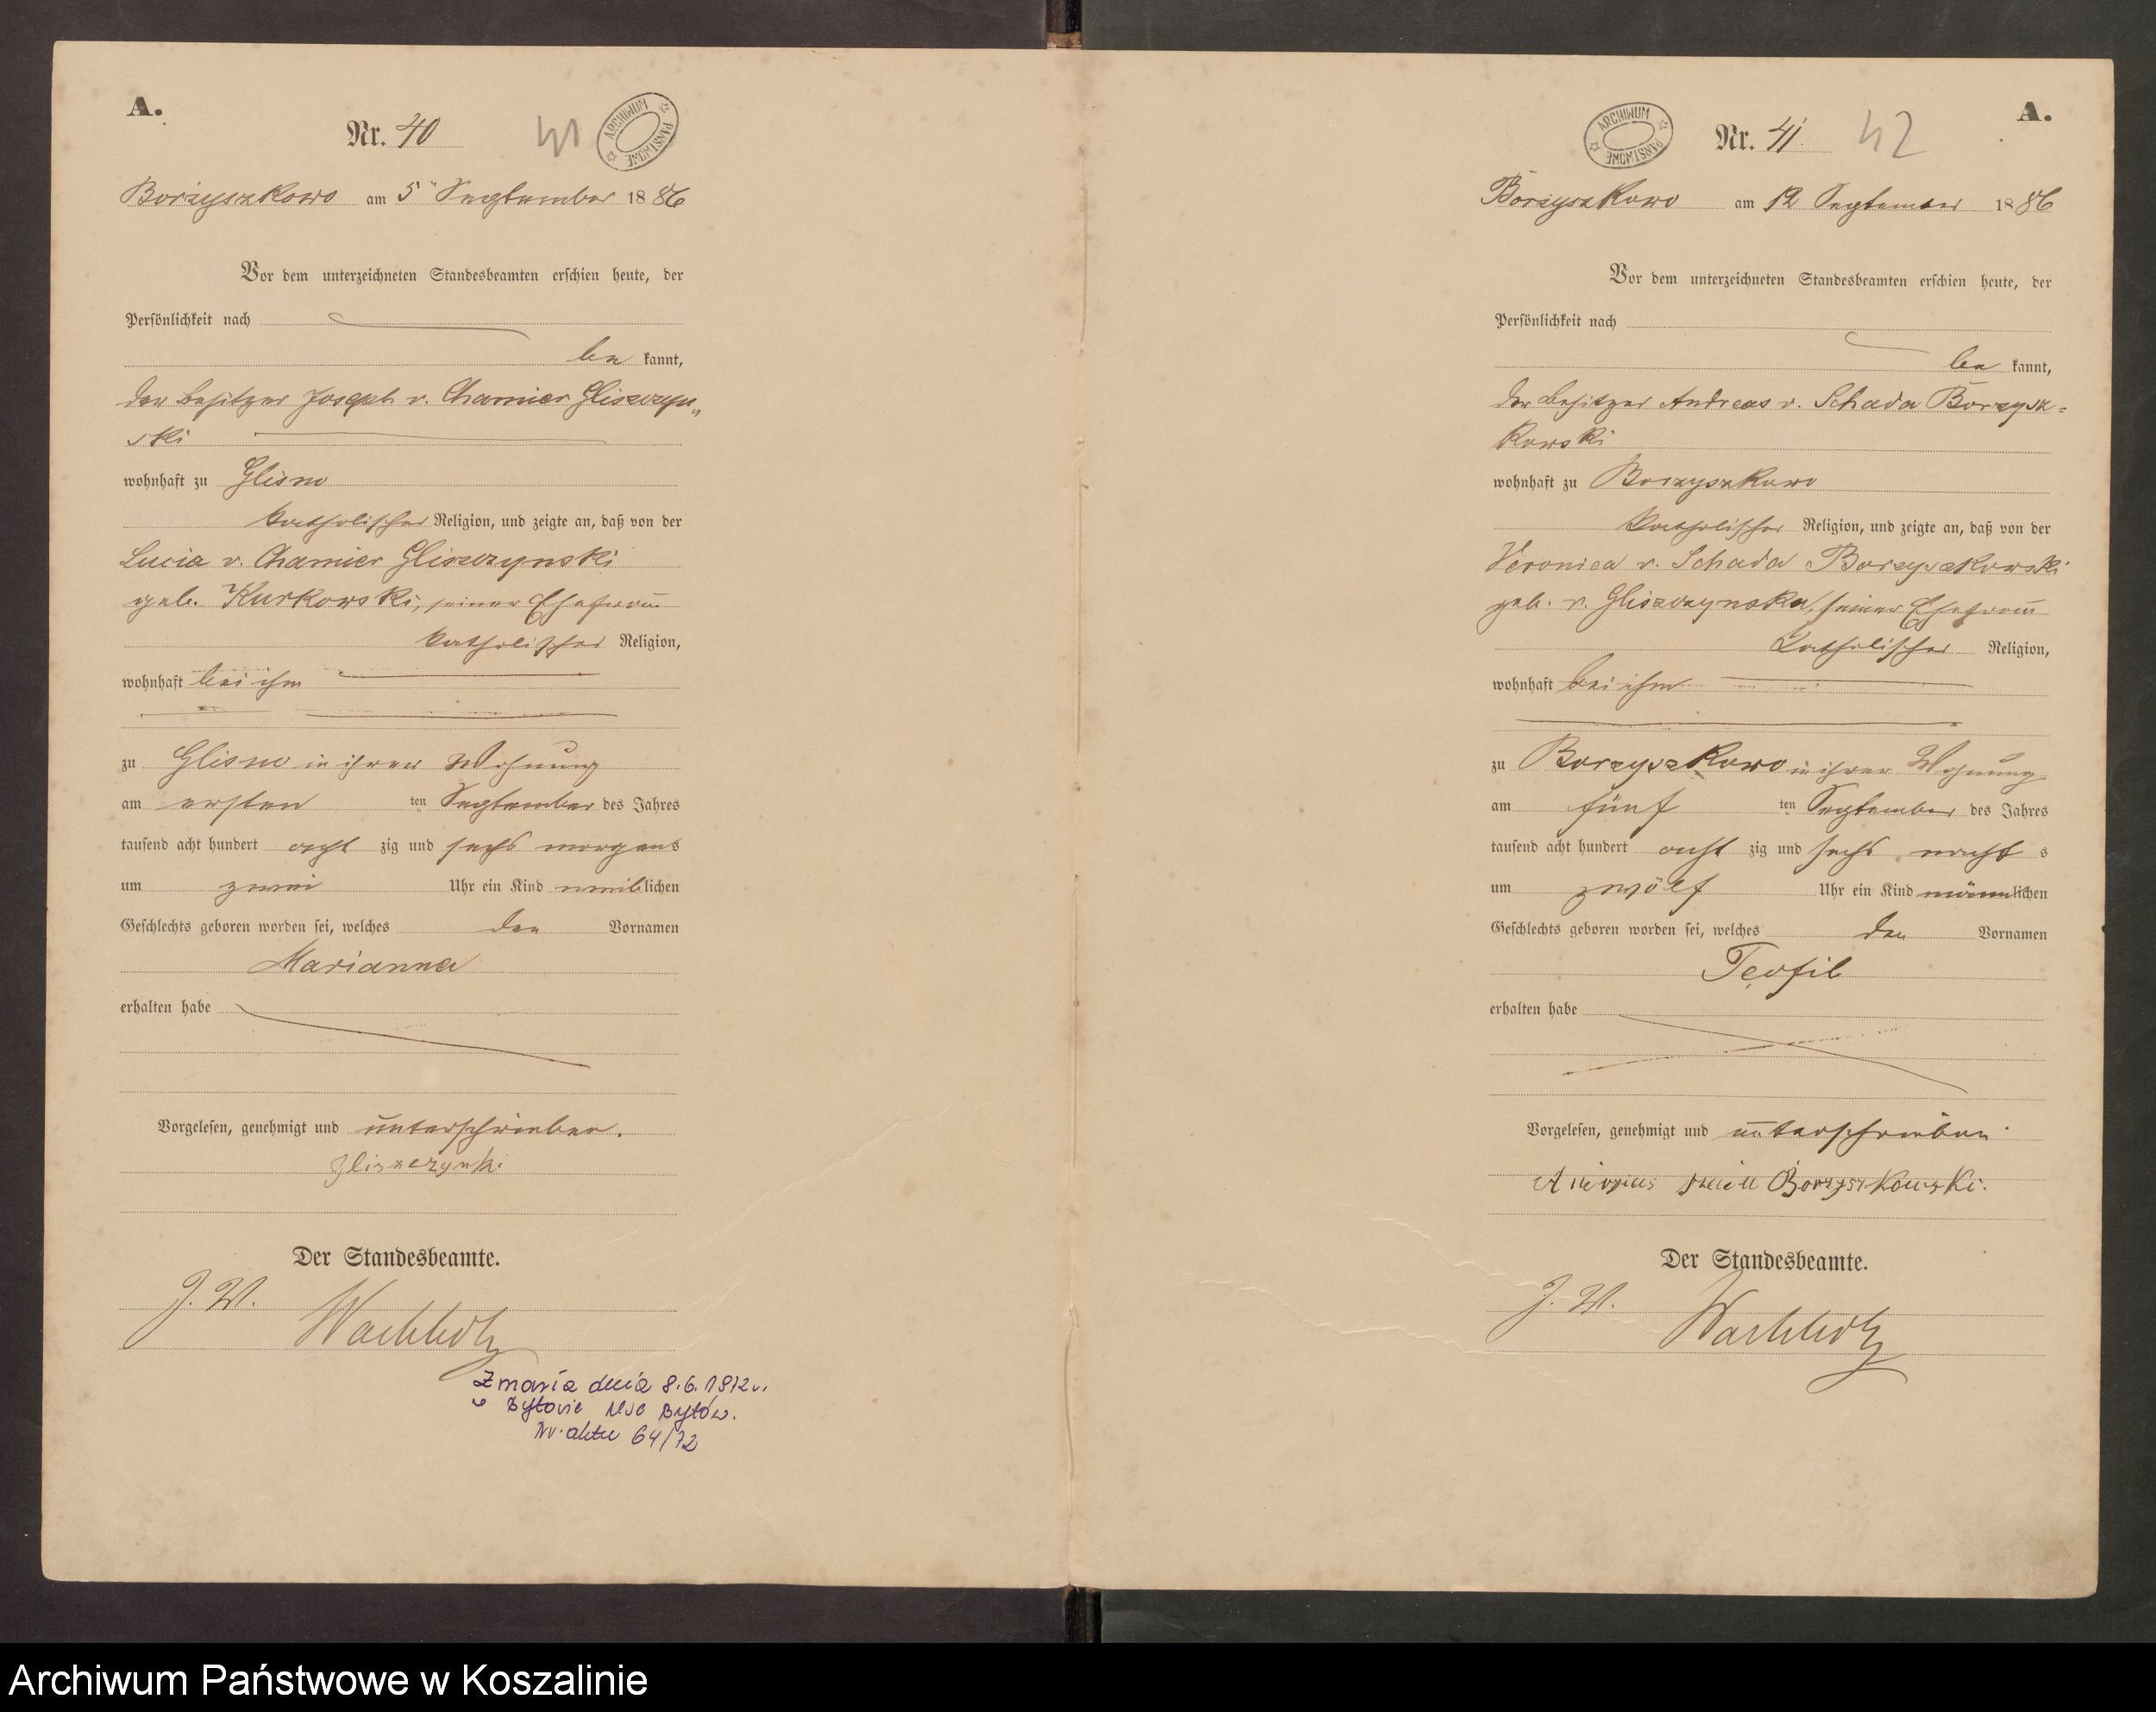 A.
Nr. 40
41
ARCHIWUM PAŃSTWOWE
Borzyszkowo am 5ᵗ September 1886
Vor dem unterzeichneten Standesbeamten erschien heute, der
Persönlichkeit nach
be kannt,
der Besitzer Joseph v. Chamier Gliszczyn„
ski
wohnhaft zu Glisno
katholischer Religion, und zeigte an, daß von der
Lucia v. Chamier Gliszczynski
geb. Kurkowski, seiner Ehefrau
katholischer Religion,
wohnhaft bei ihm
zu Glisno in ihrer Wohnung
am ersten ten September des Jahres
tausend acht hundert acht zig und sechs morgens
um zwei Uhr ein Kind weiblichen
Geschlechts geboren worden sei, welches den Vornamen
Marianna
erhalten habe
Vorgelesen, genehmigt und unterschrieben.
Gliszczynski
Der Standesbeamte.
J. V.
Wachholz
Zmarła dnia 8.6.1972 r.
w Bytowie USC Bytów.
Nr. aktu 64/72
A.
ARCHIWUM PAŃSTWOWE
Nr. 41.
42
Borzyszkowo am 12 September 1886
Vor dem unterzeichneten Standesbeamten erschien heute, der
Persönlichkeit nach
be kannt,
der Besitzer Andreas v. Schada Borzysz=
kowski
wohnhaft zu Borzyszkowo
katholischer Religion, und zeigte an, daß von der
Veronica v. Schada Borzyszkowski
geb. v. Gliszczynska, seiner Ehefrau
katholischer Religion,
wohnhaft bei ihm
zu Borzyszkowo in ihrer Wohnung
am fünf ten September des Jahres
tausend acht hundert acht zig und sechs nacht s
um zwölf Uhr ein Kind männlichen
Geschlechts geboren worden sei, welches den Vornamen
Teofil
erhalten habe
Vorgelesen, genehmigt und unterschrieben
Borzyszkowski.
Der Standesbeamte.
J. V.
Wachholz
Archiwum Państwowe w Koszalinie